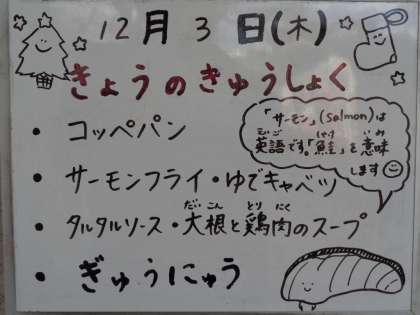 12月3日(木)
きょうのきゅうしょく
・コッペパン
・サーモンフライ・ゆでキャベツ
・タルタルソース・大根と鶏肉のスープ
だいこん とりにく
・ぎゅうにゅう
「サーモン」(Salmon)は
英語です。「鮭」を意味
えいご しゃけ いみ
します